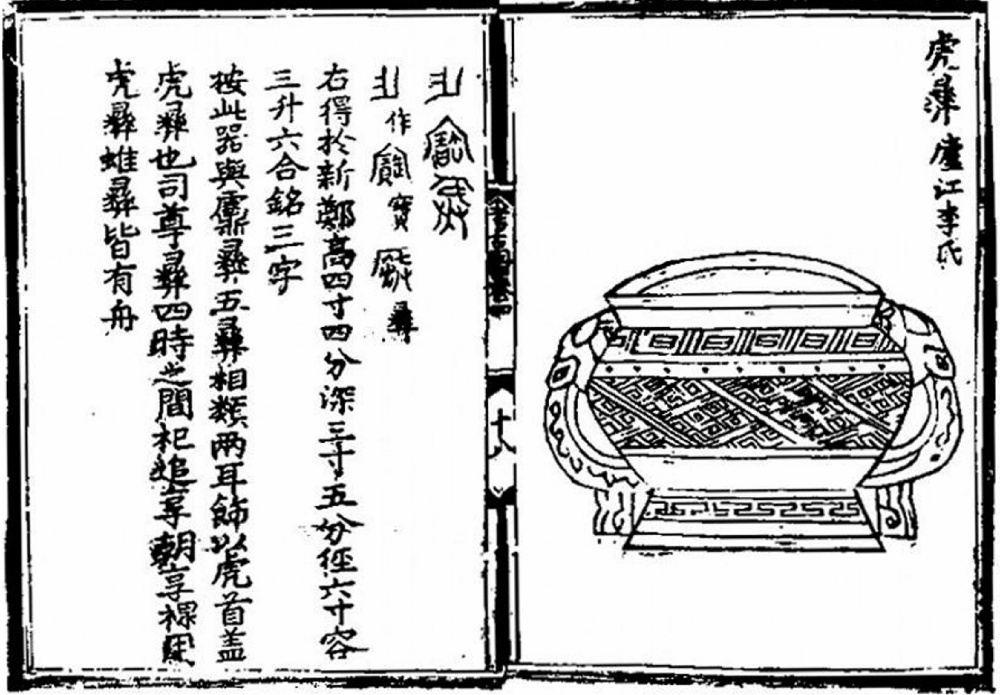 虎彝 廬江李氏
作 寶 彝
右得於新鄭高四寸四分深三寸五分徑六寸容
三升六合銘三字
按此器與 彝五彝相類兩耳飾以虎首蓋
虎彝也司尊彝四時之間祀追享朝享祼用
虎彝蜼彝皆有舟
十八